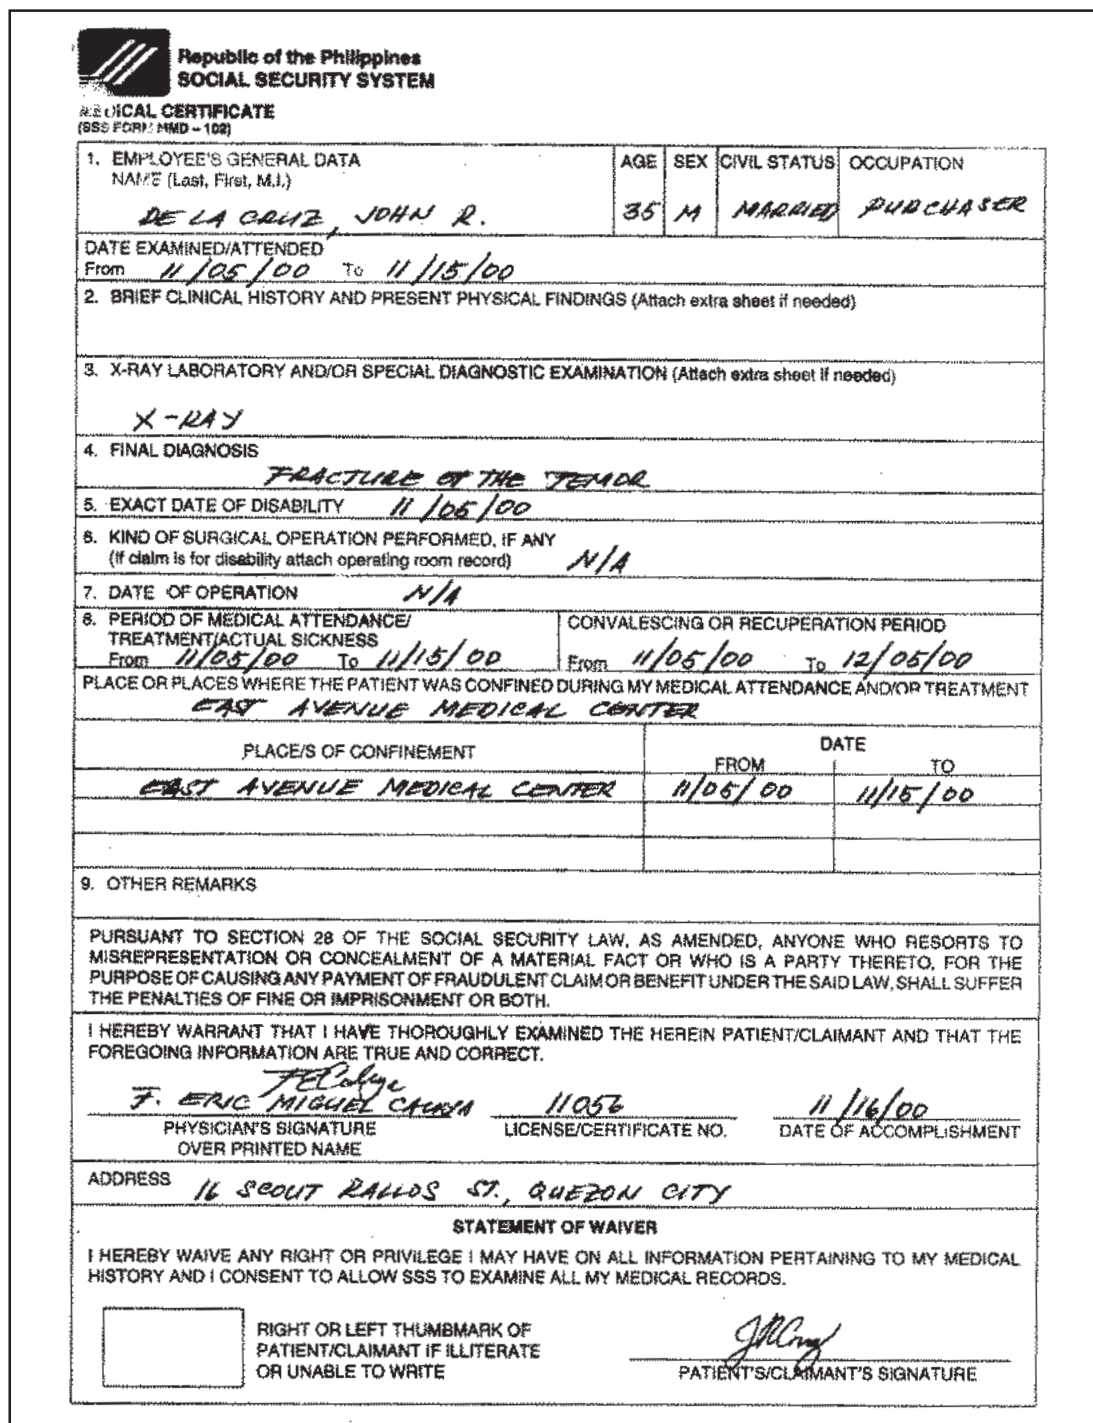 Republic of the Philippines
SOCIAL SECURITY SYSTEM
MEDICAL CERTIFICATE
(SSS FORM MMD – 102)
1. EMPLOYEE'S GENERAL DATA
NAME (Last, First, M.I.)
DE LA CRUZ, JOHN R.
AGE
35
SEX
M
CIVIL STATUS
MARRIED
OCCUPATION
PURCHASER
DATE EXAMINED/ATTENDED
From 11/05/00 To 11/15/00
2. BRIEF CLINICAL HISTORY AND PRESENT PHYSICAL FINDINGS (Attach extra sheet if needed)
3. X-RAY LABORATORY AND/OR SPECIAL DIAGNOSTIC EXAMINATION (Attach extra sheet if needed)
X-RAY
4. FINAL DIAGNOSIS
FRACTURE OF THE FEMOR
5. EXACT DATE OF DISABILITY 11/05/00
6. KIND OF SURGICAL OPERATION PERFORMED, IF ANY
(If claim is for disability attach operating room record) N/A
7. DATE OF OPERATION N/A
8. PERIOD OF MEDICAL ATTENDANCE/
TREATMENT/ACTUAL SICKNESS
From 11/05/00 To 11/15/00
CONVALESCING OR RECUPERATION PERIOD
From 11/05/00 To 12/05/00
PLACE OR PLACES WHERE THE PATIENT WAS CONFINED DURING MY MEDICAL ATTENDANCE AND/OR TREATMENT
EAST AVENUE MEDICAL CENTER
PLACE/S OF CONFINEMENT
DATE
FROM TO
EAST AVENUE MEDICAL CENTER 11/05/00 11/15/00
9. OTHER REMARKS
PURSUANT TO SECTION 28 OF THE SOCIAL SECURITY LAW, AS AMENDED, ANYONE WHO RESORTS TO
MISREPRESENTATION OR CONCEALMENT OF A MATERIAL FACT OR WHO IS A PARTY THERETO, FOR THE
PURPOSE OF CAUSING ANY PAYMENT OF FRAUDULENT CLAIM OR BENEFIT UNDER THE SAID LAW, SHALL SUFFER
THE PENALTIES OF FINE OR IMPRISONMENT OR BOTH.
I HEREBY WARRANT THAT I HAVE THOROUGHLY EXAMINED THE HEREIN PATIENT/CLAIMANT AND THAT THE
FOREGOING INFORMATION ARE TRUE AND CORRECT.
F. ERIC MIGUEL 11056 11/16/00
PHYSICIAN'S SIGNATURE
OVER PRINTED NAME
LICENSE/CERTIFICATE NO.
DATE OF ACCOMPLISHMENT
ADDRESS 16 SCOUT RALLOS ST., QUEZON CITY
STATEMENT OF WAIVER
I HEREBY WAIVE ANY RIGHT OR PRIVILEGE I MAY HAVE ON ALL INFORMATION PERTAINING TO MY MEDICAL
HISTORY AND I CONSENT TO ALLOW SSS TO EXAMINE ALL MY MEDICAL RECORDS.
RIGHT OR LEFT THUMBMARK OF
PATIENT/CLAIMANT IF ILLITERATE
OR UNABLE TO WRITE
PATIENT'S/CLAIMANT'S SIGNATURE